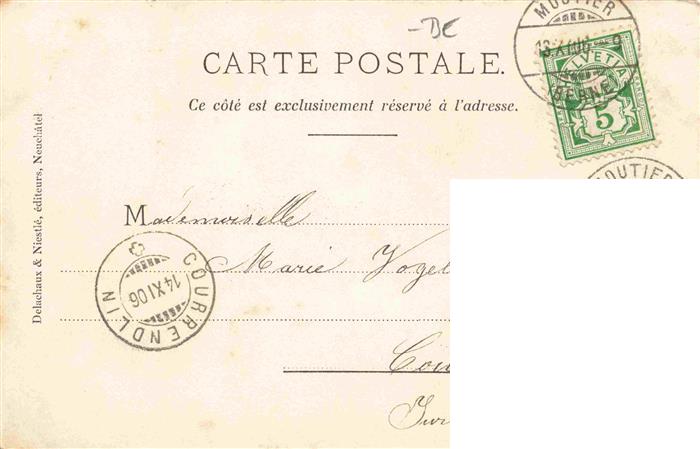 -DE
MOUTIER
13.XI.06
BERNE
HELVETIA
5
CARTE POSTALE.
Ce côté est exclusivement réservé à l'adresse.
MOUTIER
Mademoiselle
Marie Vogel
COURRENDLIN
14 XI 06
Delachaux & Niestlé, éditeurs, Neuchâtel